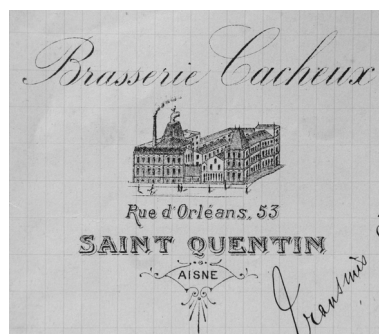 Brasserie Cacheux
Rue d'Orléans, 53
SAINT QUENTIN
AISNE
Transmis